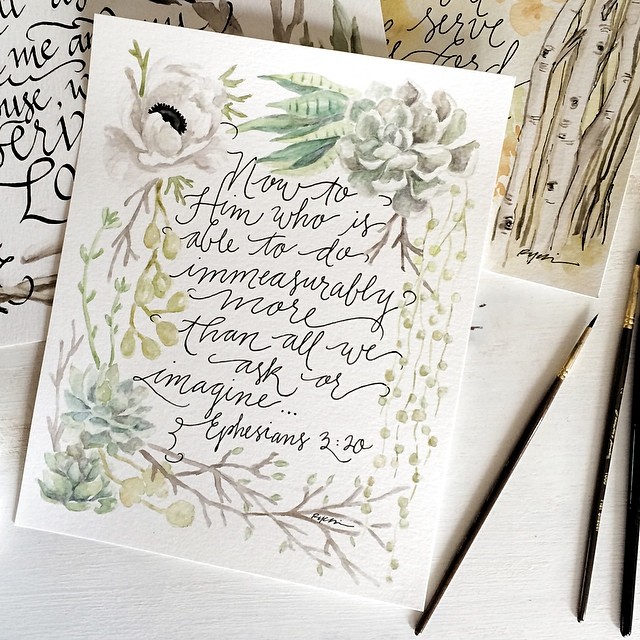 Now to
Him who is
able to do
immeasurably
more
than all we
ask or
imagine...
Ephesians 3:20
me and my
serve